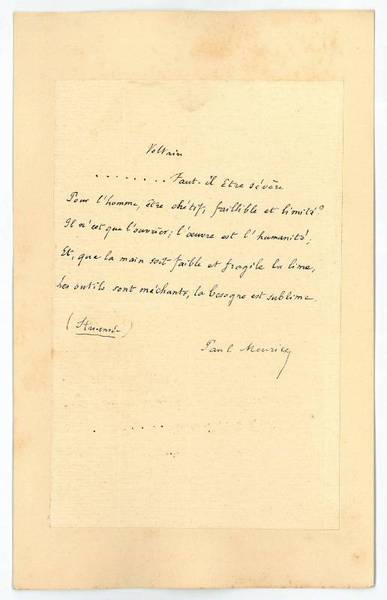 Voltaire
........ Faut-il être sévère
Pour l'homme, être chétif, faillible et limité?
Il n'est que l'ouvrier; l'œuvre est l'humanité;
Et, que la main soit faible et fragile la lime,
Les outils sont méchants, la besogne est sublime.
(Struensée)
Paul Meurice